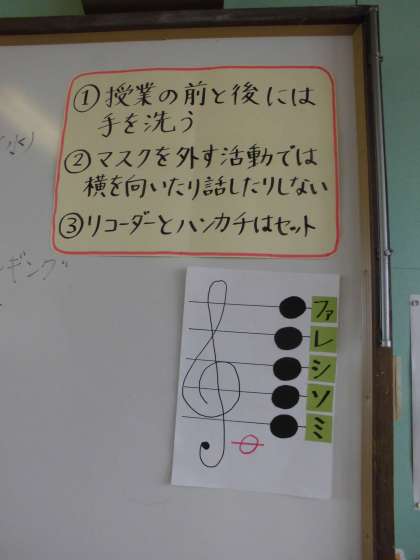 ① 授業の前と後には
手を洗う
② マスクを外す活動では
横を向いたり話したりしない
③ リコーダーとハンカチはセット
ファ
レ
シ
ソ
ミ